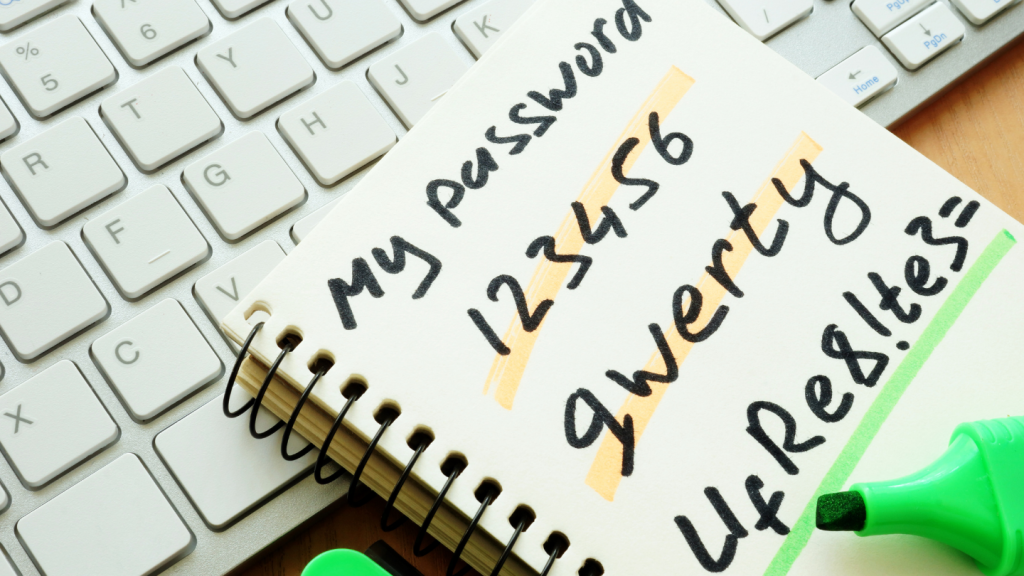 ^
6
U
K
/
PgUp
PgDn
Home
%
5
Y
J
T
H
R
G
F
D
V
C
X
My password
123456
qwerty
UfRe8!te3=